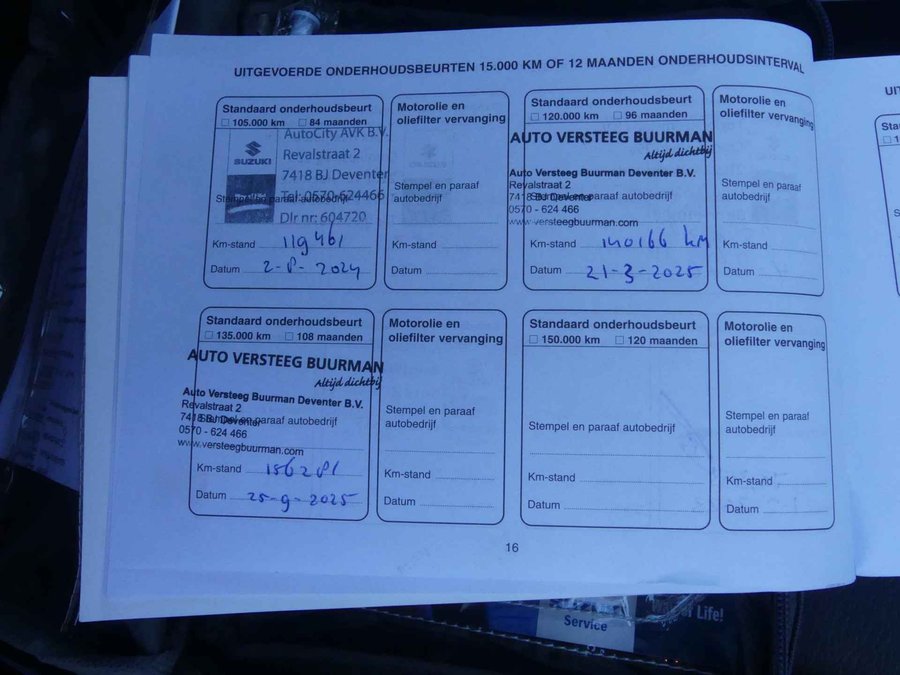 UITGEVOERDE ONDERHOUDSBEURTEN 15.000 KM OF 12 MAANDEN ONDERHOUDSINTERVAL
Standaard onderhoudsbeurt
105.000 km 84 maanden
SUZUKI
AutoCity AVK B.V.
Revalstraat 2
7418 BJ Deventer
Tel: 0570-624466
Stempel en paraaf autobedrijf
Dlr nr: 604720
Km-stand 119461
Datum 2-8-2024
Motorolie en
oliefilter vervanging
Stempel en paraaf
autobedrijf
Km-stand
Datum
Standaard onderhoudsbeurt
120.000 km 96 maanden
AUTO VERSTEEG BUURMAN
Altijd dichtbij
Auto Versteeg Buurman Deventer B.V.
Revalstraat 2
7418 BJ Deventer
Stempel en paraaf autobedrijf
0570 - 624 466
www.versteegbuurman.com
Km-stand 140166 km
Datum 21-3-2025
Motorolie en
oliefilter vervanging
Stempel en paraaf
autobedrijf
Km-stand
Datum
Standaard onderhoudsbeurt
135.000 km 108 maanden
AUTO VERSTEEG BUURMAN
Altijd dichtbij
Auto Versteeg Buurman Deventer B.V.
Revalstraat 2
7418 BJ Deventer
Stempel en paraaf autobedrijf
0570 - 624 466
www.versteegbuurman.com
Km-stand 156281
Datum 25-9-2025
Motorolie en
oliefilter vervanging
Stempel en paraaf
autobedrijf
Km-stand
Datum
Standaard onderhoudsbeurt
150.000 km 120 maanden
Stempel en paraaf autobedrijf
Km-stand
Datum
Motorolie en
oliefilter vervanging
Stempel en paraaf
autobedrijf
Km-stand
Datum
16
of Life!
Service